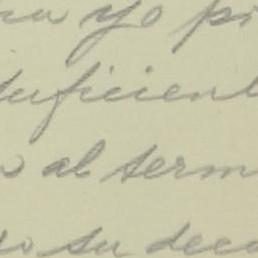 ra yo pi
suficient
o al term
do su deca